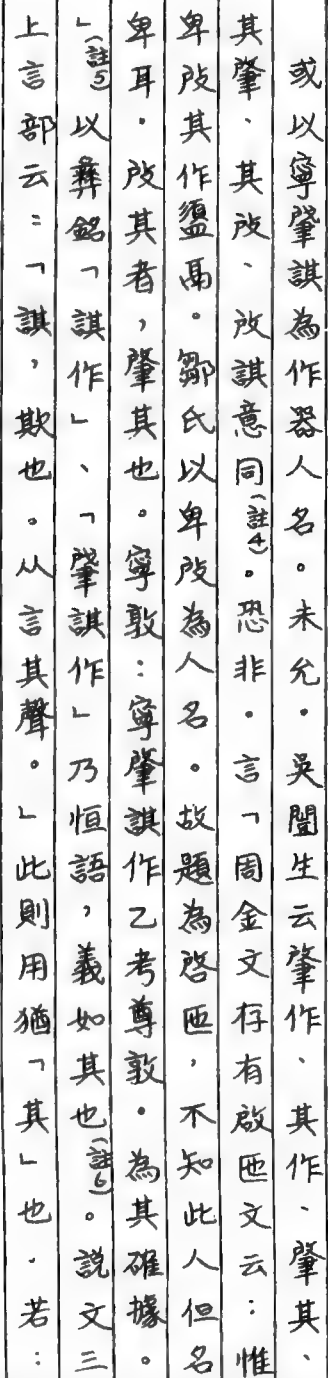 或以寧肈諆為作器人名。未允。吳闓生云肇作、其作、肇其、
其肇、其改、改諆意同(註4)。恐非。言「周金文存有啟匜文云：惟
卑改其作盨鬲。鄒氏以卑改為人名。故題為啓匜，不知此人但名
卑耳。改其者，肇其也。寧敦：寧肇諆作乙考尊敦。為其確據。
」(註5)以彝銘「諆作」、「肈諆作」乃恒語，義如其也(註6)。說文三
上言部云：「諆，欺也。从言其聲。」此則用猶「其」也。若：